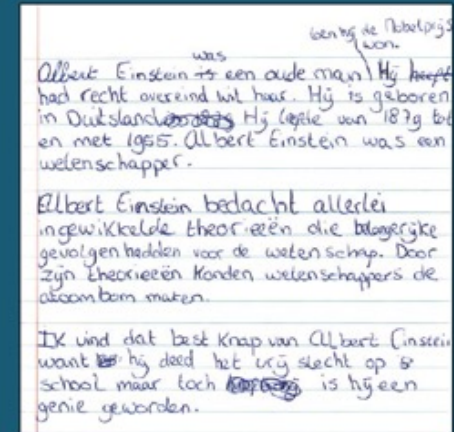 toen hij de Nobelprijs
won.
was
Albert Einstein is een oude man Hij heeft
had recht overeind wit haar. Hij is geboren
in Duitsland Hij leefde van 1879 tot
en met 1955. Albert Einstein was een
wetenschapper.
Albert Einstein bedacht allerlei
ingewikkelde theorieeën die belangerijke
gevolgen hadden voor de wetenschap. Door
zijn theorieeën konden wetenschappers de
atoombom maken.
Ik vind dat best knap van Albert Einstein
want hij deed het vrij slecht op
school maar toch is hij een
genie geworden.